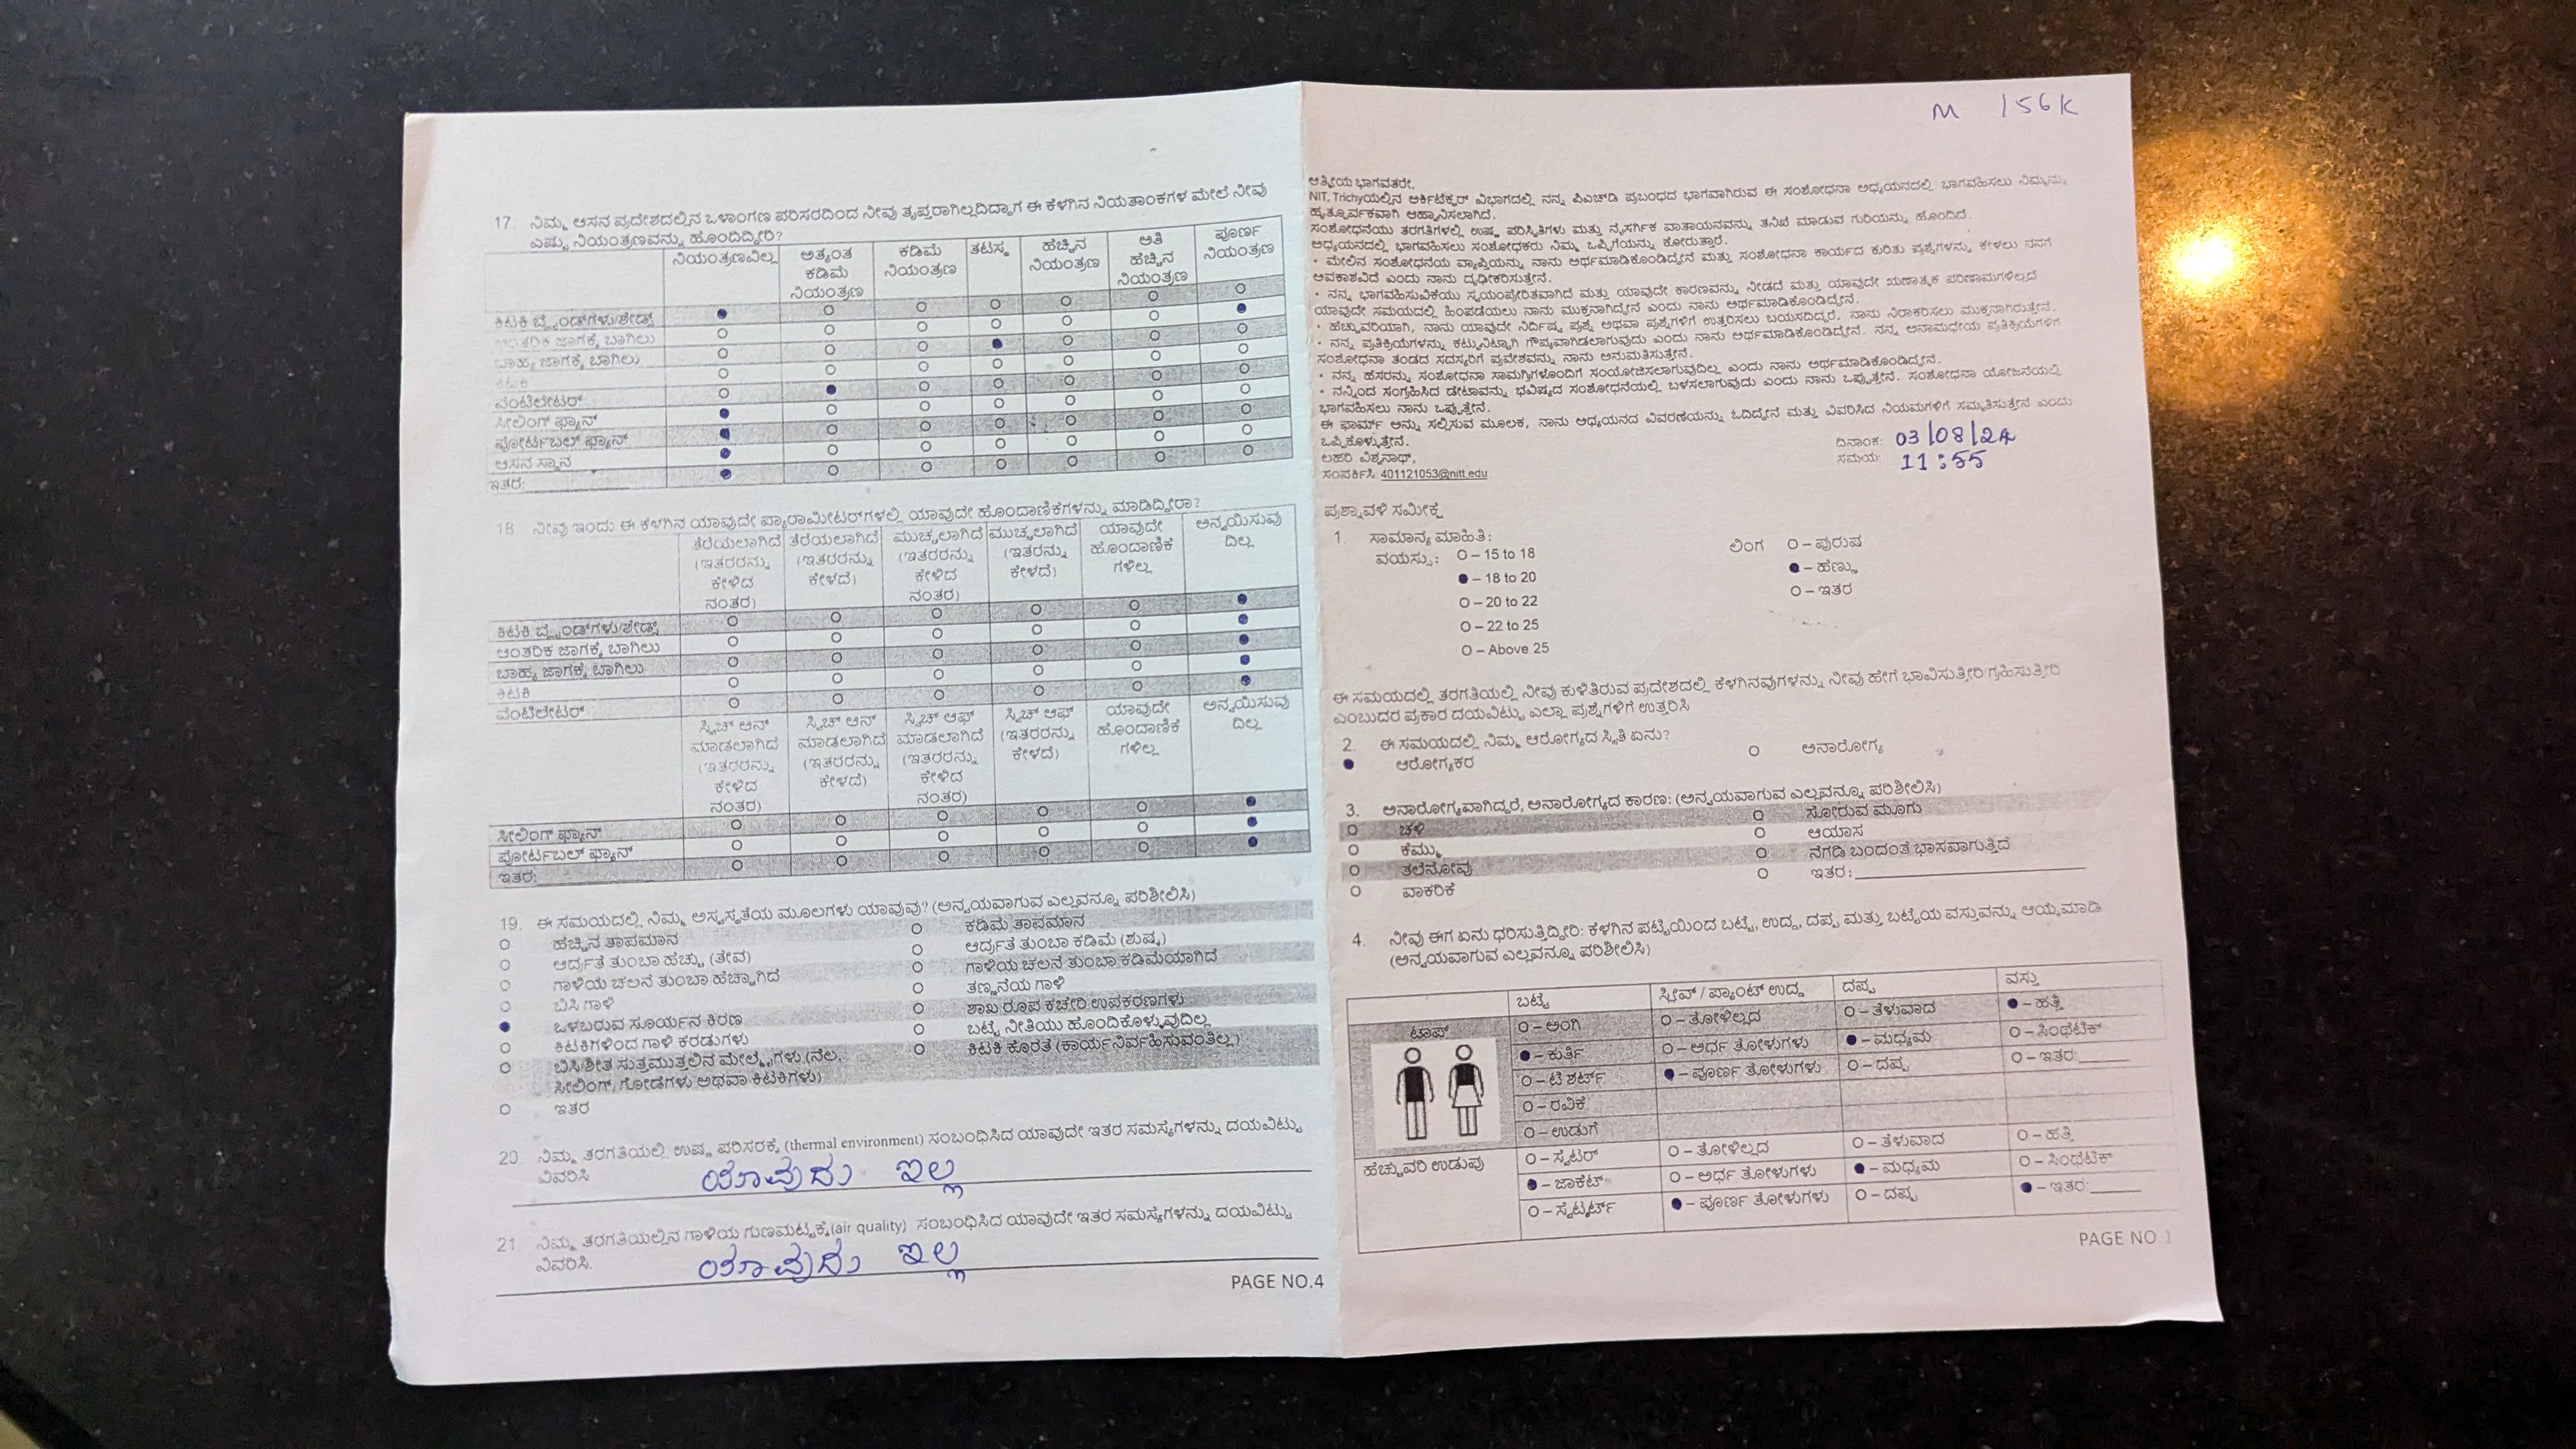 17. ನಿಮ್ಮ ಆಸನ ಪ್ರದೇಶದಲ್ಲಿನ ಒಳಾಂಗಣ ಪರಿಸರದಿಂದ ನೀವು ತೃಪ್ತರಾಗಿಲ್ಲದಿದ್ದಾಗ ಈ ಕೆಳಗಿನ ನಿಯತಾಂಕಗಳ ಮೇಲೆ ನೀವು
ಎಷ್ಟು ನಿಯಂತ್ರಣವನ್ನು ಹೊಂದಿದ್ದೀರಿ?
ನಿಯಂತ್ರಣವಿಲ್ಲ ಅತ್ಯಂತ ಕಡಿಮೆ ನಿಯಂತ್ರಣ ಕಡಿಮೆ ನಿಯಂತ್ರಣ ತಟಸ್ಥ ಹೆಚ್ಚಿನ ನಿಯಂತ್ರಣ ಅತಿ ಹೆಚ್ಚಿನ ನಿಯಂತ್ರಣ ಪೂರ್ಣ ನಿಯಂತ್ರಣ
ಕಿಟಕಿ ಬ್ಲೈಂಡ್‌ಗಳು/ಶೇಡ್ಸ್
ಜಾಗಕ್ಕೆ ಬಾಗಿಲು
ಬಾಹ್ಯ ಜಾಗಕ್ಕೆ ಬಾಗಿಲು
ಕಿಟಕಿ
ವೆಂಟಿಲೇಟರ್
ಸೀಲಿಂಗ್ ಫ್ಯಾನ್
ಪೋರ್ಟಬಲ್ ಫ್ಯಾನ್
ಆಸನ ಸ್ಥಾನ
ಇತರ:
18 ನೀವು ಇಂದು ಈ ಕೆಳಗಿನ ಯಾವುದೇ ಪ್ಯಾರಾಮೀಟರ್‌ಗಳಲ್ಲಿ ಯಾವುದೇ ಹೊಂದಾಣಿಕೆಗಳನ್ನು ಮಾಡಿದ್ದೀರಾ?
ತೆರೆಯಲಾಗಿದೆ (ಇತರರನ್ನು ಕೇಳಿದ ನಂತರ) ತೆರೆಯಲಾಗಿದೆ (ಇತರರನ್ನು ಕೇಳದೆ) ಮುಚ್ಚಲಾಗಿದೆ (ಇತರರನ್ನು ಕೇಳಿದ ನಂತರ) ಮುಚ್ಚಲಾಗಿದೆ (ಇತರರನ್ನು ಕೇಳದೆ) ಯಾವುದೇ ಹೊಂದಾಣಿಕೆ ಗಳಿಲ್ಲ ಅನ್ವಯಿಸುವು ದಿಲ್ಲ
ಕಿಟಕಿ ಬ್ಲೈಂಡ್‌ಗಳು/ಶೇಡ್ಸ್
ಆಂತರಿಕ ಜಾಗಕ್ಕೆ ಬಾಗಿಲು
ಬಾಹ್ಯ ಜಾಗಕ್ಕೆ ಬಾಗಿಲು
ಕಿಟಕಿ
ವೆಂಟಿಲೇಟರ್
ಸ್ವಿಚ್ ಆನ್ ಮಾಡಲಾಗಿದೆ (ಇತರರನ್ನು ಕೇಳಿದ ನಂತರ) ಸ್ವಿಚ್ ಆನ್ ಮಾಡಲಾಗಿದೆ (ಇತರರನ್ನು ಕೇಳದೆ) ಸ್ವಿಚ್ ಆಫ್ ಮಾಡಲಾಗಿದೆ (ಇತರರನ್ನು ಕೇಳಿದ ನಂತರ) ಸ್ವಿಚ್ ಆಫ್ (ಇತರರನ್ನು ಕೇಳದೆ) ಯಾವುದೇ ಹೊಂದಾಣಿಕೆ ಗಳಿಲ್ಲ ಅನ್ವಯಿಸುವು ದಿಲ್ಲ
ಸೀಲಿಂಗ್ ಫ್ಯಾನ್
ಪೋರ್ಟಬಲ್ ಫ್ಯಾನ್
ಇತರ:
19. ಈ ಸಮಯದಲ್ಲಿ ನಿಮ್ಮ ಅಸ್ವಸ್ಥತೆಯ ಮೂಲಗಳು ಯಾವುವು? (ಅನ್ವಯವಾಗುವ ಎಲ್ಲವನ್ನೂ ಪರಿಶೀಲಿಸಿ)
ಹೆಚ್ಚಿನ ತಾಪಮಾನ ಕಡಿಮೆ ತಾಪಮಾನ
ಆರ್ದ್ರತೆ ತುಂಬಾ ಹೆಚ್ಚು (ತೇವ) ಆರ್ದ್ರತೆ ತುಂಬಾ ಕಡಿಮೆ (ಶುಷ್ಕ)
ಗಾಳಿಯ ಚಲನೆ ತುಂಬಾ ಹೆಚ್ಚಾಗಿದೆ ಗಾಳಿಯ ಚಲನೆ ತುಂಬಾ ಕಡಿಮೆಯಾಗಿದೆ
ಬಿಸಿ ಗಾಳಿ ತಣ್ಣನೆಯ ಗಾಳಿ
ಒಳಬರುವ ಸೂರ್ಯನ ಕಿರಣ ಶಾಖ ರೂಪ ಕಚೇರಿ ಉಪಕರಣಗಳು
ಕಿಟಕಿಗಳಿಂದ ಗಾಳಿ ಕರಡುಗಳು ಬಟ್ಟೆ ನೀತಿಯು ಹೊಂದಿಕೊಳ್ಳುವುದಿಲ್ಲ
ಬಿಸಿ/ಶೀತ ಸುತ್ತಮುತ್ತಲಿನ ಮೇಲ್ಮೈಗಳು (ನೆಲ, ಕಿಟಕಿ ಕೊರತೆ (ಕಾರ್ಯನಿರ್ವಹಿಸುವಂತಿಲ್ಲ)
ಸೀಲಿಂಗ್, ಗೋಡೆಗಳು ಅಥವಾ ಕಿಟಕಿಗಳು)
ಇತರ
20. ನಿಮ್ಮ ತರಗತಿಯಲ್ಲಿ ಉಷ್ಣ ಪರಿಸರಕ್ಕೆ (thermal environment) ಸಂಬಂಧಿಸಿದ ಯಾವುದೇ ಇತರ ಸಮಸ್ಯೆಗಳನ್ನು ದಯವಿಟ್ಟು
ವಿವರಿಸಿ ಯಾವುದು ಇಲ್ಲ
21 ನಿಮ್ಮ ತರಗತಿಯಲ್ಲಿನ ಗಾಳಿಯ ಗುಣಮಟ್ಟಕ್ಕೆ(air quality) ಸಂಬಂಧಿಸಿದ ಯಾವುದೇ ಇತರ ಸಮಸ್ಯೆಗಳನ್ನು ದಯವಿಟ್ಟು
ವಿವರಿಸಿ. ಯಾವುದು ಇಲ್ಲ
PAGE NO.4
M 156K
ಆತ್ಮೀಯ ಭಾಗವತರೇ,
NIT, Trichyಯಲ್ಲಿನ ಆರ್ಕಿಟೆಕ್ಚರ್ ವಿಭಾಗದಲ್ಲಿ ನನ್ನ ಪಿಎಚ್‌ಡಿ ಪ್ರಬಂಧದ ಭಾಗವಾಗಿರುವ ಈ ಸಂಶೋಧನಾ ಅಧ್ಯಯನದಲ್ಲಿ ಭಾಗವಹಿಸಲು ನಿಮ್ಮನ್ನು
ಹೃತ್ಪೂರ್ವಕವಾಗಿ ಆಹ್ವಾನಿಸಲಾಗಿದೆ.
ಸಂಶೋಧನೆಯು ತರಗತಿಗಳಲ್ಲಿ ಉಷ್ಣ ಪರಿಸ್ಥಿತಿಗಳು ಮತ್ತು ನೈಸರ್ಗಿಕ ವಾತಾಯನವನ್ನು ತನಿಖೆ ಮಾಡುವ ಗುರಿಯನ್ನು ಹೊಂದಿದೆ.
ಅಧ್ಯಯನದಲ್ಲಿ ಭಾಗವಹಿಸಲು ಸಂಶೋಧಕರು ನಿಮ್ಮ ಒಪ್ಪಿಗೆಯನ್ನು ಕೋರುತ್ತಾರೆ.
• ಮೇಲಿನ ಸಂಶೋಧನೆಯ ವ್ಯಾಪ್ತಿಯನ್ನು ನಾನು ಅರ್ಥಮಾಡಿಕೊಂಡಿದ್ದೇನೆ ಮತ್ತು ಸಂಶೋಧನಾ ಕಾರ್ಯದ ಕುರಿತು ಪ್ರಶ್ನೆಗಳನ್ನು ಕೇಳಲು ನನಗೆ
ಅವಕಾಶವಿದೆ ಎಂದು ನಾನು ದೃಢೀಕರಿಸುತ್ತೇನೆ.
• ನನ್ನ ಭಾಗವಹಿಸುವಿಕೆಯು ಸ್ವಯಂಪ್ರೇರಿತವಾಗಿದೆ ಮತ್ತು ಯಾವುದೇ ಕಾರಣವನ್ನು ನೀಡದೆ ಮತ್ತು ಯಾವುದೇ ಋಣಾತ್ಮಕ ಪರಿಣಾಮಗಳಿಲ್ಲದೆ
ಯಾವುದೇ ಸಮಯದಲ್ಲಿ ಹಿಂಪಡೆಯಲು ನಾನು ಮುಕ್ತನಾಗಿದ್ದೇನೆ ಎಂದು ನಾನು ಅರ್ಥಮಾಡಿಕೊಂಡಿದ್ದೇನೆ.
• ಹೆಚ್ಚುವರಿಯಾಗಿ, ನಾನು ಯಾವುದೇ ನಿರ್ದಿಷ್ಟ ಪ್ರಶ್ನೆ ಅಥವಾ ಪ್ರಶ್ನೆಗಳಿಗೆ ಉತ್ತರಿಸಲು ಬಯಸದಿದ್ದರೆ, ನಾನು ನಿರಾಕರಿಸಲು ಮುಕ್ತನಾಗಿರುತ್ತೇನೆ.
• ನನ್ನ ಪ್ರತಿಕ್ರಿಯೆಗಳನ್ನು ಕಟ್ಟುನಿಟ್ಟಾಗಿ ಗೌಪ್ಯವಾಗಿಡಲಾಗುವುದು ಎಂದು ನಾನು ಅರ್ಥಮಾಡಿಕೊಂಡಿದ್ದೇನೆ. ನನ್ನ ಅನಾಮಧೇಯ ಪ್ರತಿಕ್ರಿಯೆಗಳಿಗೆ
ಸಂಶೋಧನಾ ತಂಡದ ಸದಸ್ಯರಿಗೆ ಪ್ರವೇಶವನ್ನು ನಾನು ಅನುಮತಿಸುತ್ತೇನೆ.
• ನನ್ನ ಹೆಸರನ್ನು ಸಂಶೋಧನಾ ಸಾಮಗ್ರಿಗಳೊಂದಿಗೆ ಸಂಯೋಜಿಸಲಾಗುವುದಿಲ್ಲ ಎಂದು ನಾನು ಅರ್ಥಮಾಡಿಕೊಂಡಿದ್ದೇನೆ.
• ನನ್ನಿಂದ ಸಂಗ್ರಹಿಸಿದ ಡೇಟಾವನ್ನು ಭವಿಷ್ಯದ ಸಂಶೋಧನೆಯಲ್ಲಿ ಬಳಸಲಾಗುವುದು ಎಂದು ನಾನು ಒಪ್ಪುತ್ತೇನೆ. ಸಂಶೋಧನಾ ಯೋಜನೆಯಲ್ಲಿ
ಭಾಗವಹಿಸಲು ನಾನು ಒಪ್ಪುತ್ತೇನೆ.
ಈ ಫಾರ್ಮ್ ಅನ್ನು ಸಲ್ಲಿಸುವ ಮೂಲಕ, ನಾನು ಅಧ್ಯಯನದ ವಿವರಣೆಯನ್ನು ಓದಿದ್ದೇನೆ ಮತ್ತು ವಿವರಿಸಿದ ನಿಯಮಗಳಿಗೆ ಸಮ್ಮತಿಸುತ್ತೇನೆ ಎಂದು
ಒಪ್ಪಿಕೊಳ್ಳುತ್ತೇನೆ.
ಲಹರಿ ವಿಶ್ವನಾಥ್, ದಿನಾಂಕ: 03/08/24
ಸಂಪರ್ಕಿಸಿ 401121053@nitt.edu ಸಮಯ: 11:55
ಪ್ರಶ್ನಾವಳಿ ಸಮೀಕ್ಷೆ
1. ಸಾಮಾನ್ಯ ಮಾಹಿತಿ:
ವಯಸ್ಸು: – 15 to 18 ಲಿಂಗ – ಪುರುಷ
– 18 to 20 – ಹೆಣ್ಣು
– 20 to 22 – ಇತರ
– 22 to 25
– Above 25
ಈ ಸಮಯದಲ್ಲಿ ತರಗತಿಯಲ್ಲಿ ನೀವು ಕುಳಿತಿರುವ ಪ್ರದೇಶದಲ್ಲಿ ಕೆಳಗಿನವುಗಳನ್ನು ನೀವು ಹೇಗೆ ಭಾವಿಸುತ್ತೀರಿ/ಗ್ರಹಿಸುತ್ತೀರಿ
ಎಂಬುದರ ಪ್ರಕಾರ ದಯವಿಟ್ಟು ಎಲ್ಲಾ ಪ್ರಶ್ನೆಗಳಿಗೆ ಉತ್ತರಿಸಿ
2. ಈ ಸಮಯದಲ್ಲಿ ನಿಮ್ಮ ಆರೋಗ್ಯದ ಸ್ಥಿತಿ ಏನು?
ಆರೋಗ್ಯಕರ ಅನಾರೋಗ್ಯ
3. ಅನಾರೋಗ್ಯವಾಗಿದ್ದರೆ, ಅನಾರೋಗ್ಯದ ಕಾರಣ: (ಅನ್ವಯವಾಗುವ ಎಲ್ಲವನ್ನೂ ಪರಿಶೀಲಿಸಿ)
ಚಳಿ ಸೋರುವ ಮೂಗು
ಕೆಮ್ಮು ಆಯಾಸ
ತಲೆನೋವು ನೆಗಡಿ ಬಂದಂತೆ ಭಾಸವಾಗುತ್ತಿದೆ
ವಾಕರಿಕೆ ಇತರ:
4. ನೀವು ಈಗ ಏನು ಧರಿಸುತ್ತಿದ್ದೀರಿ: ಕೆಳಗಿನ ಪಟ್ಟಿಯಿಂದ ಬಟ್ಟೆ, ಉದ್ದ, ದಪ್ಪ ಮತ್ತು ಬಟ್ಟೆಯ ವಸ್ತುವನ್ನು ಆಯ್ಕೆಮಾಡಿ
(ಅನ್ವಯವಾಗುವ ಎಲ್ಲವನ್ನೂ ಪರಿಶೀಲಿಸಿ)
ಬಟ್ಟೆ ಸ್ಲೀವ್ / ಪ್ಯಾಂಟ್ ಉದ್ದ ದಪ್ಪ ವಸ್ತು
ಟಾಪ್ – ಅಂಗಿ – ತೋಳಿಲ್ಲದ – ತೆಳುವಾದ – ಹತ್ತಿ
– ಕುರ್ತಿ – ಅರ್ಧ ತೋಳುಗಳು – ಮಧ್ಯಮ – ಸಿಂಥೆಟಿಕ್
– ಟಿ ಶರ್ಟ್ – ಪೂರ್ಣ ತೋಳುಗಳು – ದಪ್ಪ – ಇತರ:
– ರವಿಕೆ
– ಉಡುಗೆ
ಹೆಚ್ಚುವರಿ ಉಡುಪು – ಸ್ವೆಟರ್ – ತೋಳಿಲ್ಲದ – ತೆಳುವಾದ – ಹತ್ತಿ
– ಜಾಕೆಟ್ – ಅರ್ಧ ತೋಳುಗಳು – ಮಧ್ಯಮ – ಸಿಂಥೆಟಿಕ್
– ಸ್ವೆಟ್ಶರ್ಟ್ – ಪೂರ್ಣ ತೋಳುಗಳು – ದಪ್ಪ – ಇತರ:
PAGE NO.1